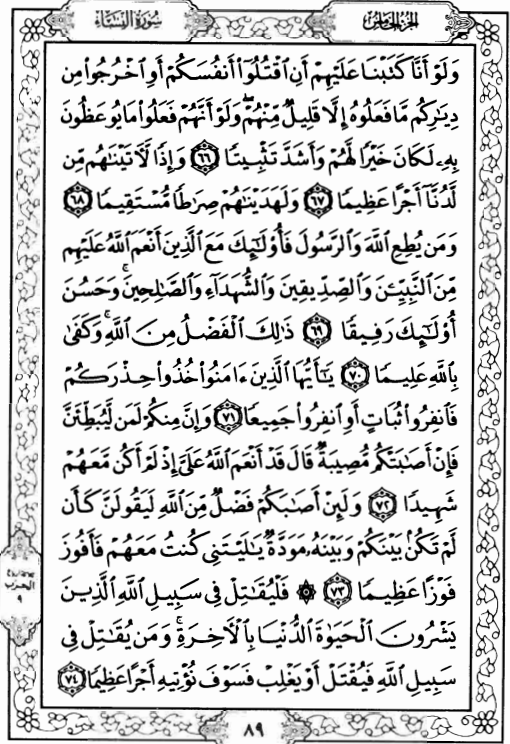 سُورَةُ النِّسَاءِ الجُزْءُ الخَامِسُ
وَلَوْ أَنَّا كَتَبْنَا عَلَيْهِمْ أَنِ ٱقْتُلُوٓا۟ أَنفُسَكُمْ أَوِ ٱخْرُجُوا۟ مِن
دِيَـٰرِكُم مَّا فَعَلُوهُ إِلَّا قَلِيلٌ مِّنْهُمْ ۖ وَلَوْ أَنَّهُمْ فَعَلُوا۟ مَا يُوعَظُونَ
بِهِۦ لَكَانَ خَيْرًا لَّهُمْ وَأَشَدَّ تَثْبِيتًا ٦٦ وَإِذًا لَّـَٔاتَيْنَـٰهُم مِّن
لَّدُنَّآ أَجْرًا عَظِيمًا ٦٧ وَلَهَدَيْنَـٰهُمْ صِرَٰطًا مُّسْتَقِيمًا ٦٨
وَمَن يُطِعِ ٱللَّهَ وَٱلرَّسُولَ فَأُو۟لَـٰٓئِكَ مَعَ ٱلَّذِينَ أَنْعَمَ ٱللَّهُ عَلَيْهِم
مِّنَ ٱلنَّبِيِّـۧنَ وَٱلصِّدِّيقِينَ وَٱلشُّهَدَآءِ وَٱلصَّـٰلِحِينَ ۚ وَحَسُنَ
أُو۟لَـٰٓئِكَ رَفِيقًا ٦٩ ذَٰلِكَ ٱلْفَضْلُ مِنَ ٱللَّهِ ۚ وَكَفَىٰ
بِٱللَّهِ عَلِيمًا ٧٠ يَـٰٓأَيُّهَا ٱلَّذِينَ ءَامَنُوا۟ خُذُوا۟ حِذْرَكُمْ
فَٱنفِرُوا۟ ثُبَاتٍ أَوِ ٱنفِرُوا۟ جَمِيعًا ٧١ وَإِنَّ مِنكُمْ لَمَن لَّيُبَطِّئَنَّ
فَإِنْ أَصَـٰبَتْكُم مُّصِيبَةٌ قَالَ قَدْ أَنْعَمَ ٱللَّهُ عَلَىَّ إِذْ لَمْ أَكُن مَّعَهُمْ
شَهِيدًا ٧٢ وَلَئِنْ أَصَـٰبَكُمْ فَضْلٌ مِّنَ ٱللَّهِ لَيَقُولَنَّ كَأَن
لَّمْ تَكُنۢ بَيْنَكُمْ وَبَيْنَهُۥ مَوَدَّةٌ يَـٰلَيْتَنِى كُنتُ مَعَهُمْ فَأَفُوزَ
فَوْزًا عَظِيمًا ٧٣ ۞ فَلْيُقَـٰتِلْ فِى سَبِيلِ ٱللَّهِ ٱلَّذِينَ
يَشْرُونَ ٱلْحَيَوٰةَ ٱلدُّنْيَا بِٱلْـَٔاخِرَةِ ۚ وَمَن يُقَـٰتِلْ فِى
سَبِيلِ ٱللَّهِ فَيُقْتَلْ أَوْ يَغْلِبْ فَسَوْفَ نُؤْتِيهِ أَجْرًا عَظِيمًا ٧٤
الحزب
٩
٨٩